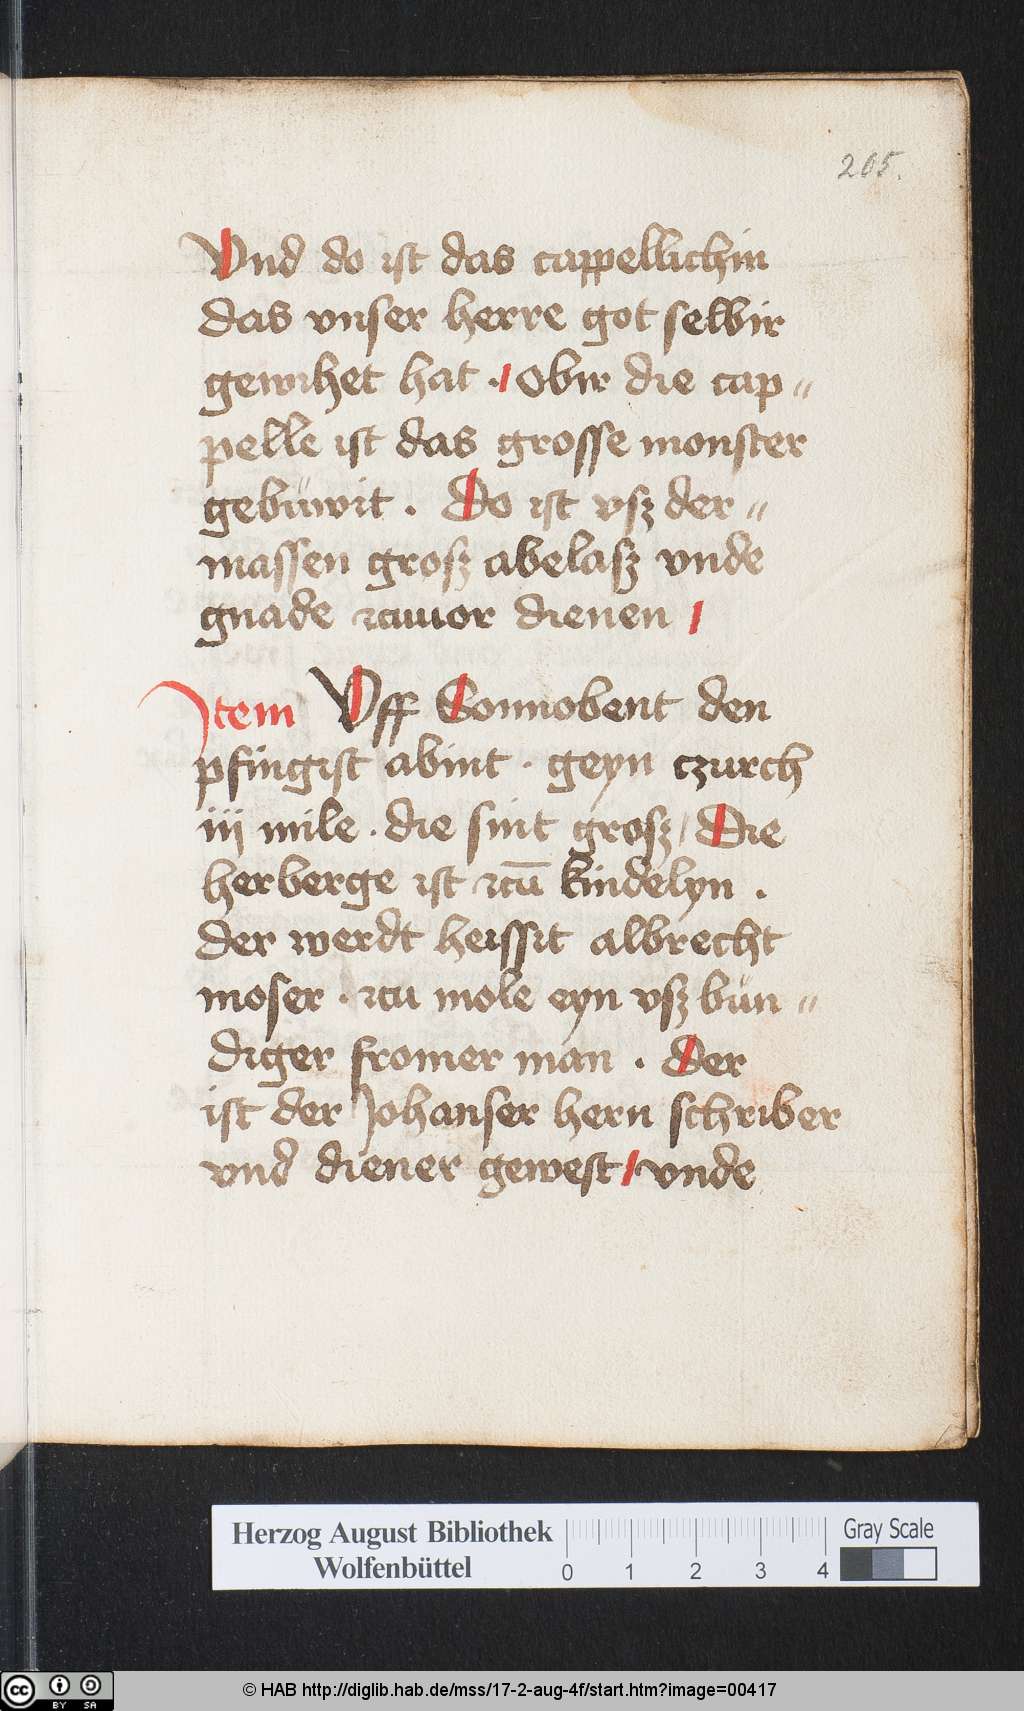 265.
Vnd do ist das cappellichin
das vnser herre got selbir
gewihet hat · Obir die cap„
pelle ist das grosse monster
gebüwit . Do ist vsz der„
massen grosz abelasz vnde
gnade zcuuor dienen
Item Vff Sonnobent den
pfingist abint · geyn czurch
iij mile · die sint grosz / Die
herberge ist zcū kindelyn .
der werdt heissit albrecht
moser · zcu mole eyn vsz bün„
diger fromer man . Der
ist der Johanser hern schriber
vnd diener gewest vnde
Herzog August Bibliothek
Wolfenbüttel
0 1 2 3 4
Gray Scale
cc BY SA
© HAB http://diglib.hab.de/mss/17-2-aug-4f/start.htm?image=00417